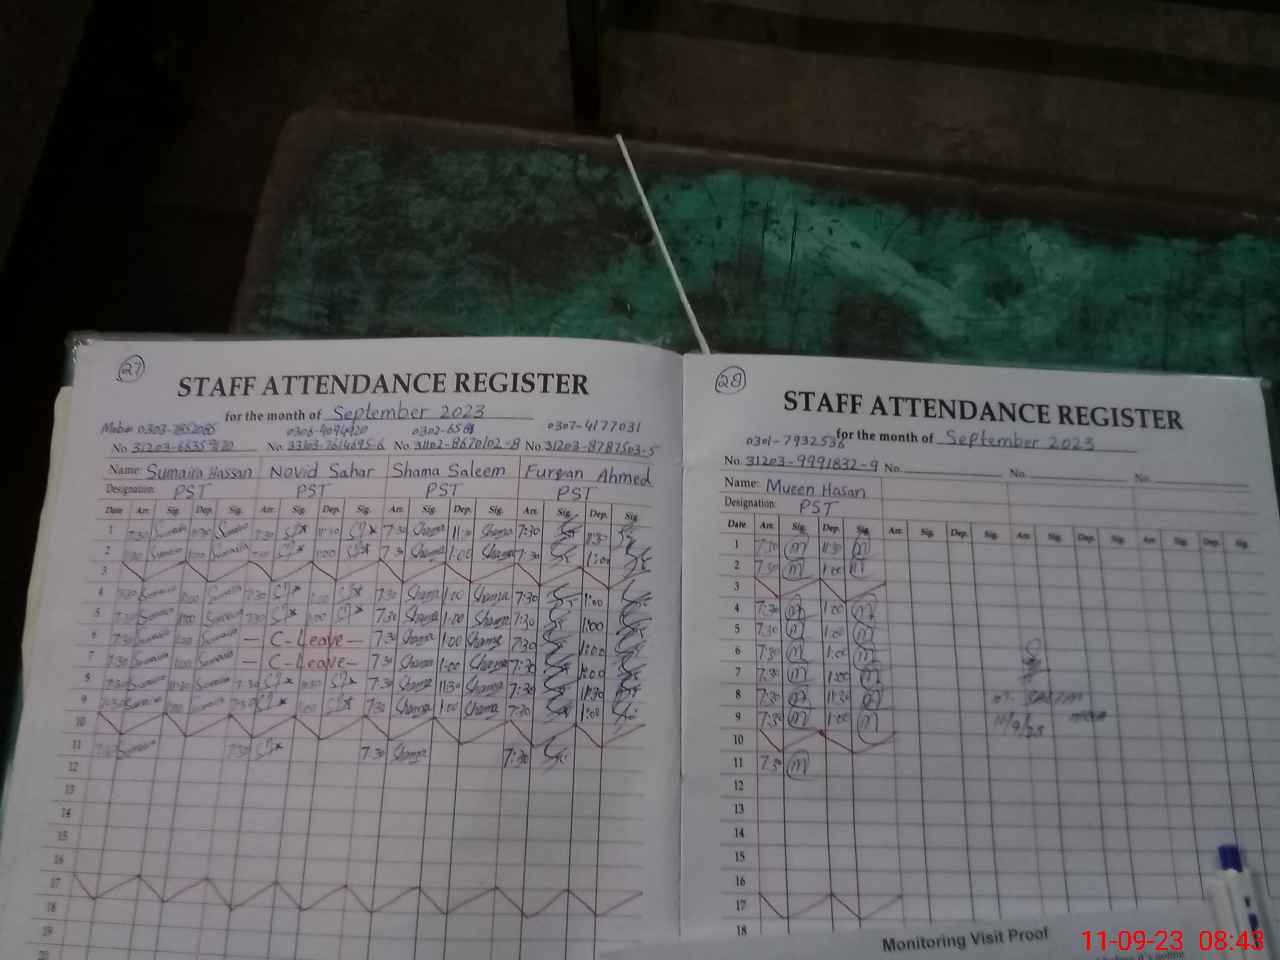 27
STAFF ATTENDANCE REGISTER
for the month of September 2023
0307-4177031
No. 33303-7614695-6 No. 31102-8670102-8 No. 31203-8787503-5
Name: Sumaira Hassan Novid Sahar Shama Saleem Furqan Ahmed
Designation: PST PST PST PST
Date Arr. Sig. Dep. Sig. Arr. Sig. Dep. Sig. Arr. Sig. Dep. Sig. Arr. Sig. Dep. Sig.
1 7:30 Sumaira 11:30 Sumaira 7:30 11:30 7:30 Shama 11:30 Shama 7:30 11:30
2 7:30 Sumaira 1:00 Sumaira 7:30 1:00 7:30 Shama 1:00 Shama 7:30 1:00
3
4 7:30 Sumaira 1:00 Sumaira 7:30 1:00 7:30 Shama 1:00 Shama 7:30 1:00
5 7:30 Sumaira 1:00 Sumaira 7:30 1:00 7:30 Shama 1:00 Shama 7:30 1:00
6 7:30 Sumaira 1:00 Sumaira — C-Leave — 7:30 Shama 1:00 Shama 7:30 1:00
7 7:30 Sumaira 1:00 Sumaira — C-Leave — 7:30 Shama 1:00 Shama 7:30 1:00
8 7:30 Sumaira 11:30 Sumaira 7:30 11:30 7:30 Shama 11:30 Shama 7:30 11:30
9 7:30 Sumaira 1:00 Sumaira 7:30 1:00 7:30 Shama 1:00 Shama 7:30 1:00
10
11 7:30 Sumaira 7:30 7:30 Shama 7:30
12
13
14
15
16
17
18
19
20
28
STAFF ATTENDANCE REGISTER
0301-7932536 for the month of September 2023
No. 31203-9991832-9 No. No. No.
Name: Mueen Hasan
Designation: PST
Date Arr. Sig. Dep. Sig. Arr. Sig. Dep. Sig. Arr. Sig. Dep. Sig. Arr. Sig. Dep. Sig.
1 7:30 m 11:30 m
2 7:30 m 1:00 m
3
4 7:30 m 1:00 m
5 7:30 m 1:00 m
6 7:30 m 1:00 m
7 7:30 m 1:00 m
8 7:30 m 11:30 m
9 7:30 m 1:00 m
10
11 7:30 m
12
13
14
15
16
17
18
Monitoring Visit Proof
11-09-23 08:43